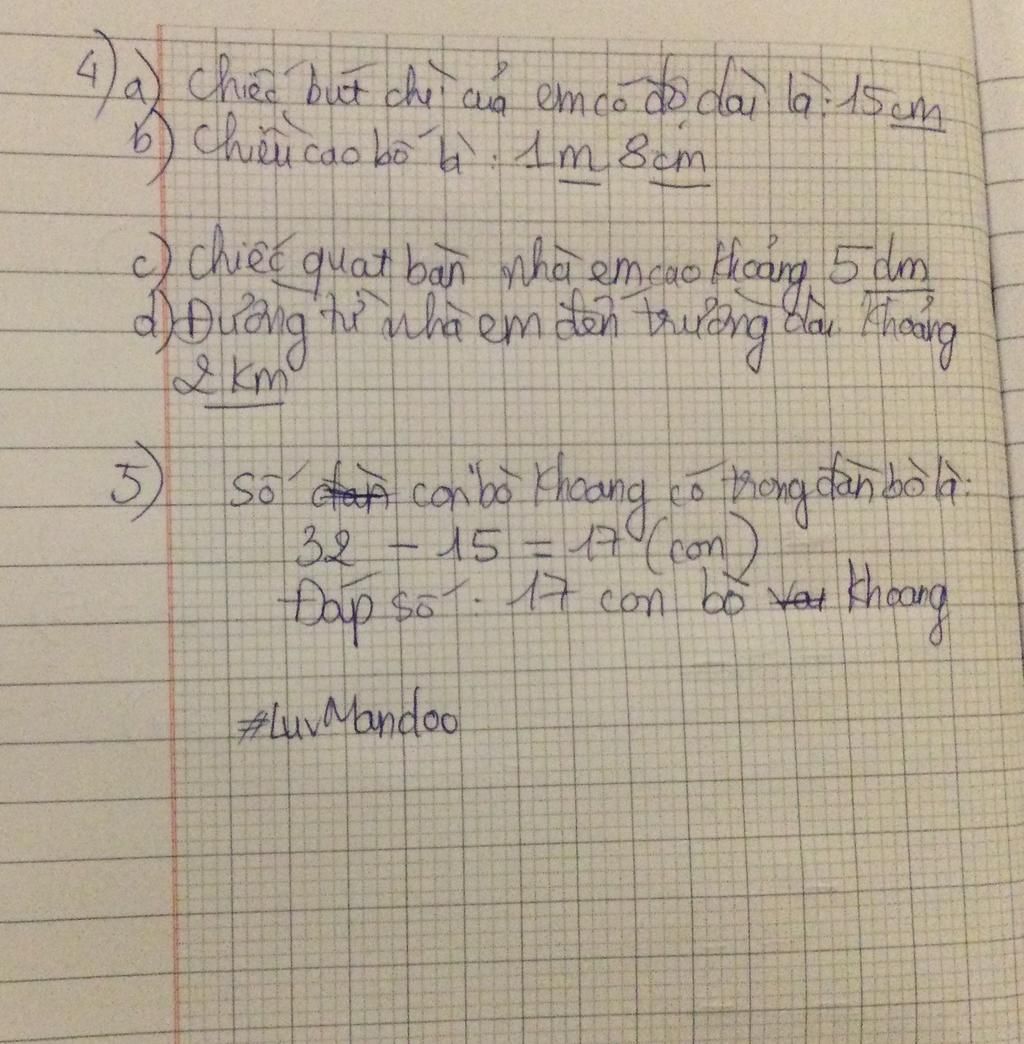 4) a) Chiếc bút chì của em có độ dài là: 15 cm
b) Chiều cao bố là: 1m 8cm
c) Chiếc quạt bàn nhà em cao khoảng 5 dm
d) Đường từ nhà em đến trường dài khoảng
2 km
5) Số đàn con bò khoang có trong đàn bò là:
32 - 15 = 17 (con)
Đáp số: 17 con bò khoang
#LuvMandoo